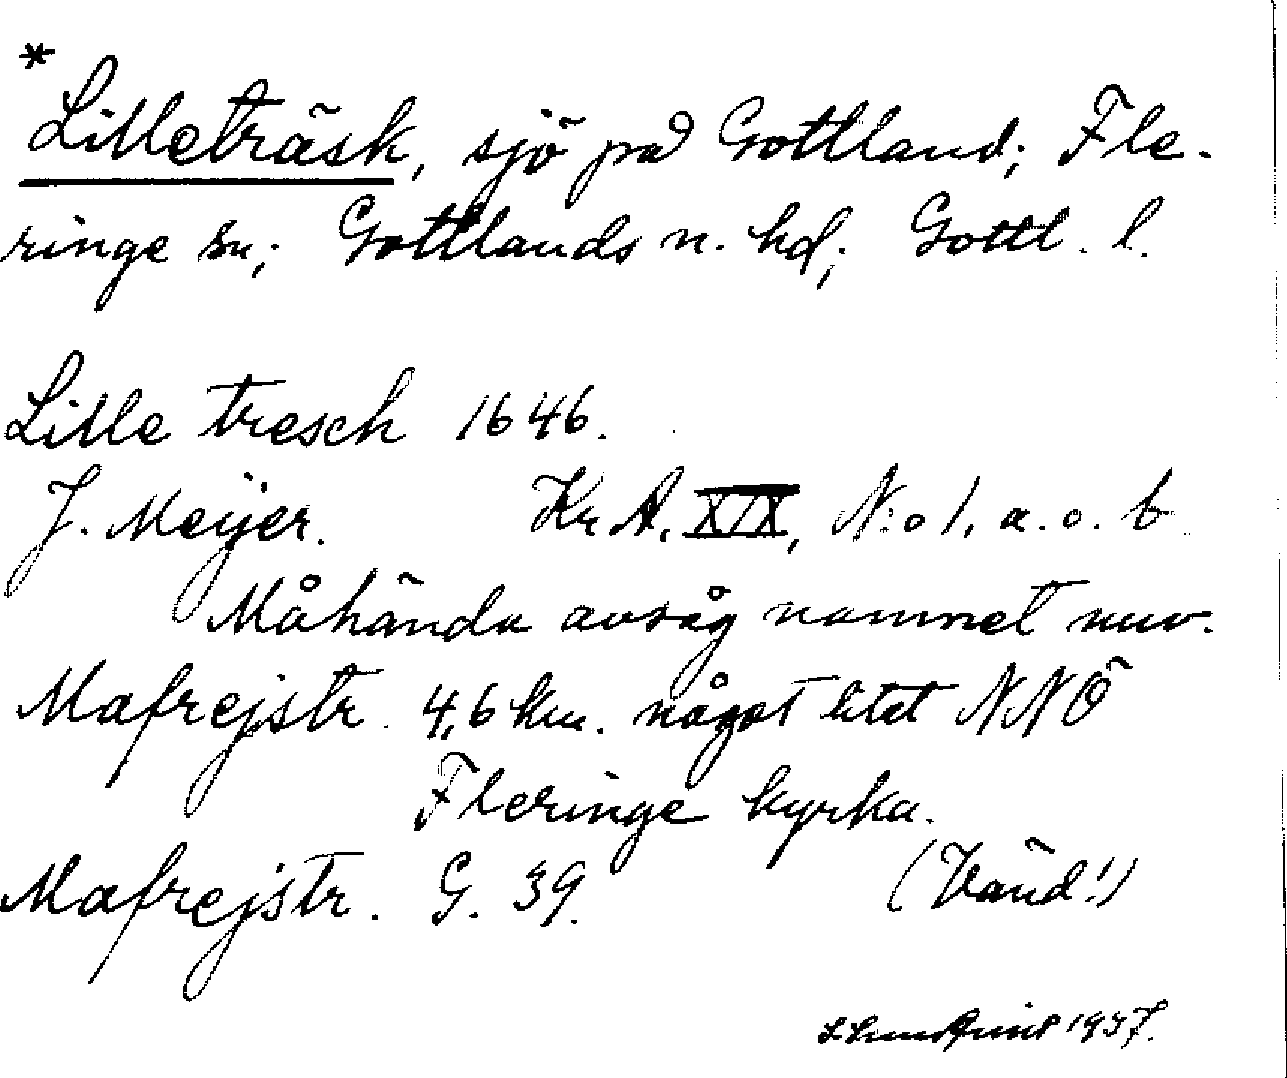 *
Lilleträsk, sjö på Gottland; Fle-
ringe sn; Gottlands n. hd; Gottl. l.
Lille tresch 1646.
J. Meijer. Kr A. XIX, N:o 1, a. o. b
Måhända avsåg namnet nuv.
Mafrejstr. 4,6 km. något litet NNÖ
Fleringe kyrka.
Mafrejstr. G. 39.
(Vänd!)
1937.